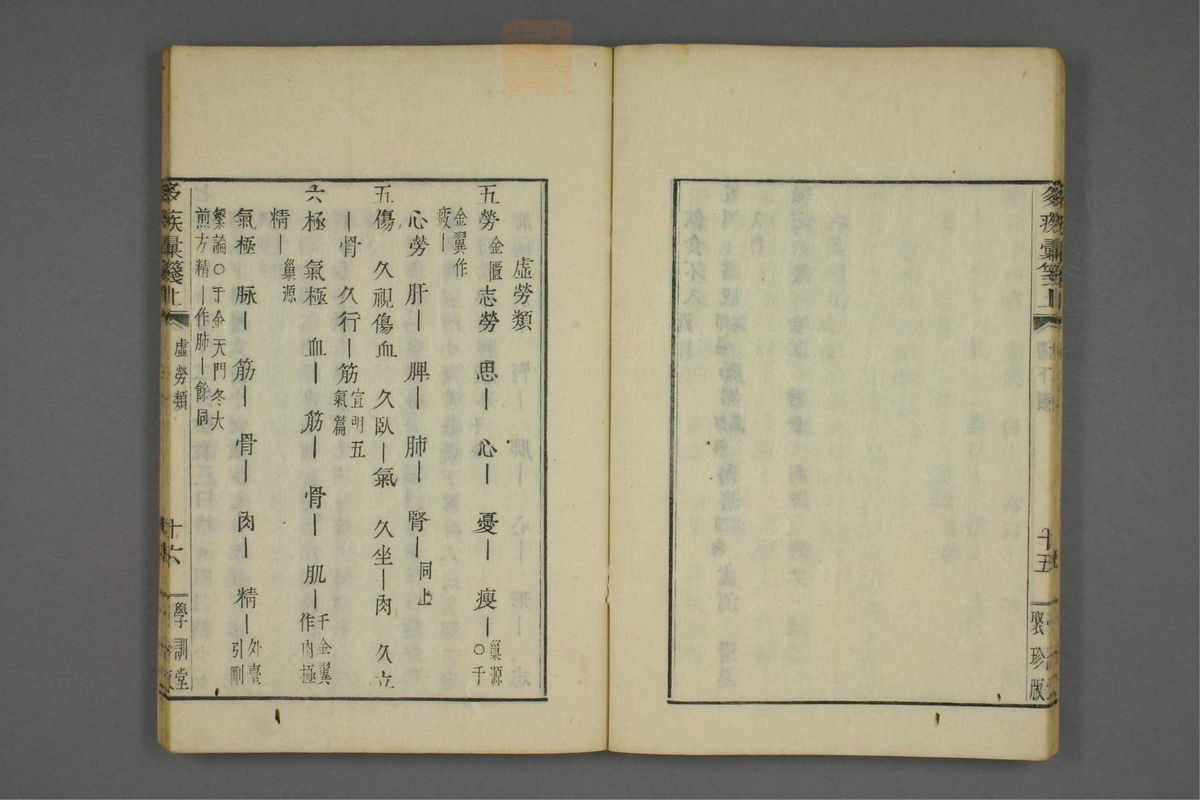 虛勞類
五勞金匱志勞 思｜ 心｜ 憂｜ 瘦｜巢源○千
金翼作疲｜
心勞 肝｜ 脾｜ 肺｜ 腎｜同上
五傷 久視傷血 久臥｜氣 久坐｜肉 久立
骨 久行｜筋宣明五氣篇
六極 氣極 血｜ 筋｜ 骨｜ 肌｜千金翼作肉極
精｜巢源
氣極 脉｜ 筋｜ 骨｜ 肉｜ 精｜外臺引刪
繁論○于金天門冬大煎方精｜作肺｜餘同
虛勞類
十六
學訓堂
彙箋上
十五
聚珍版